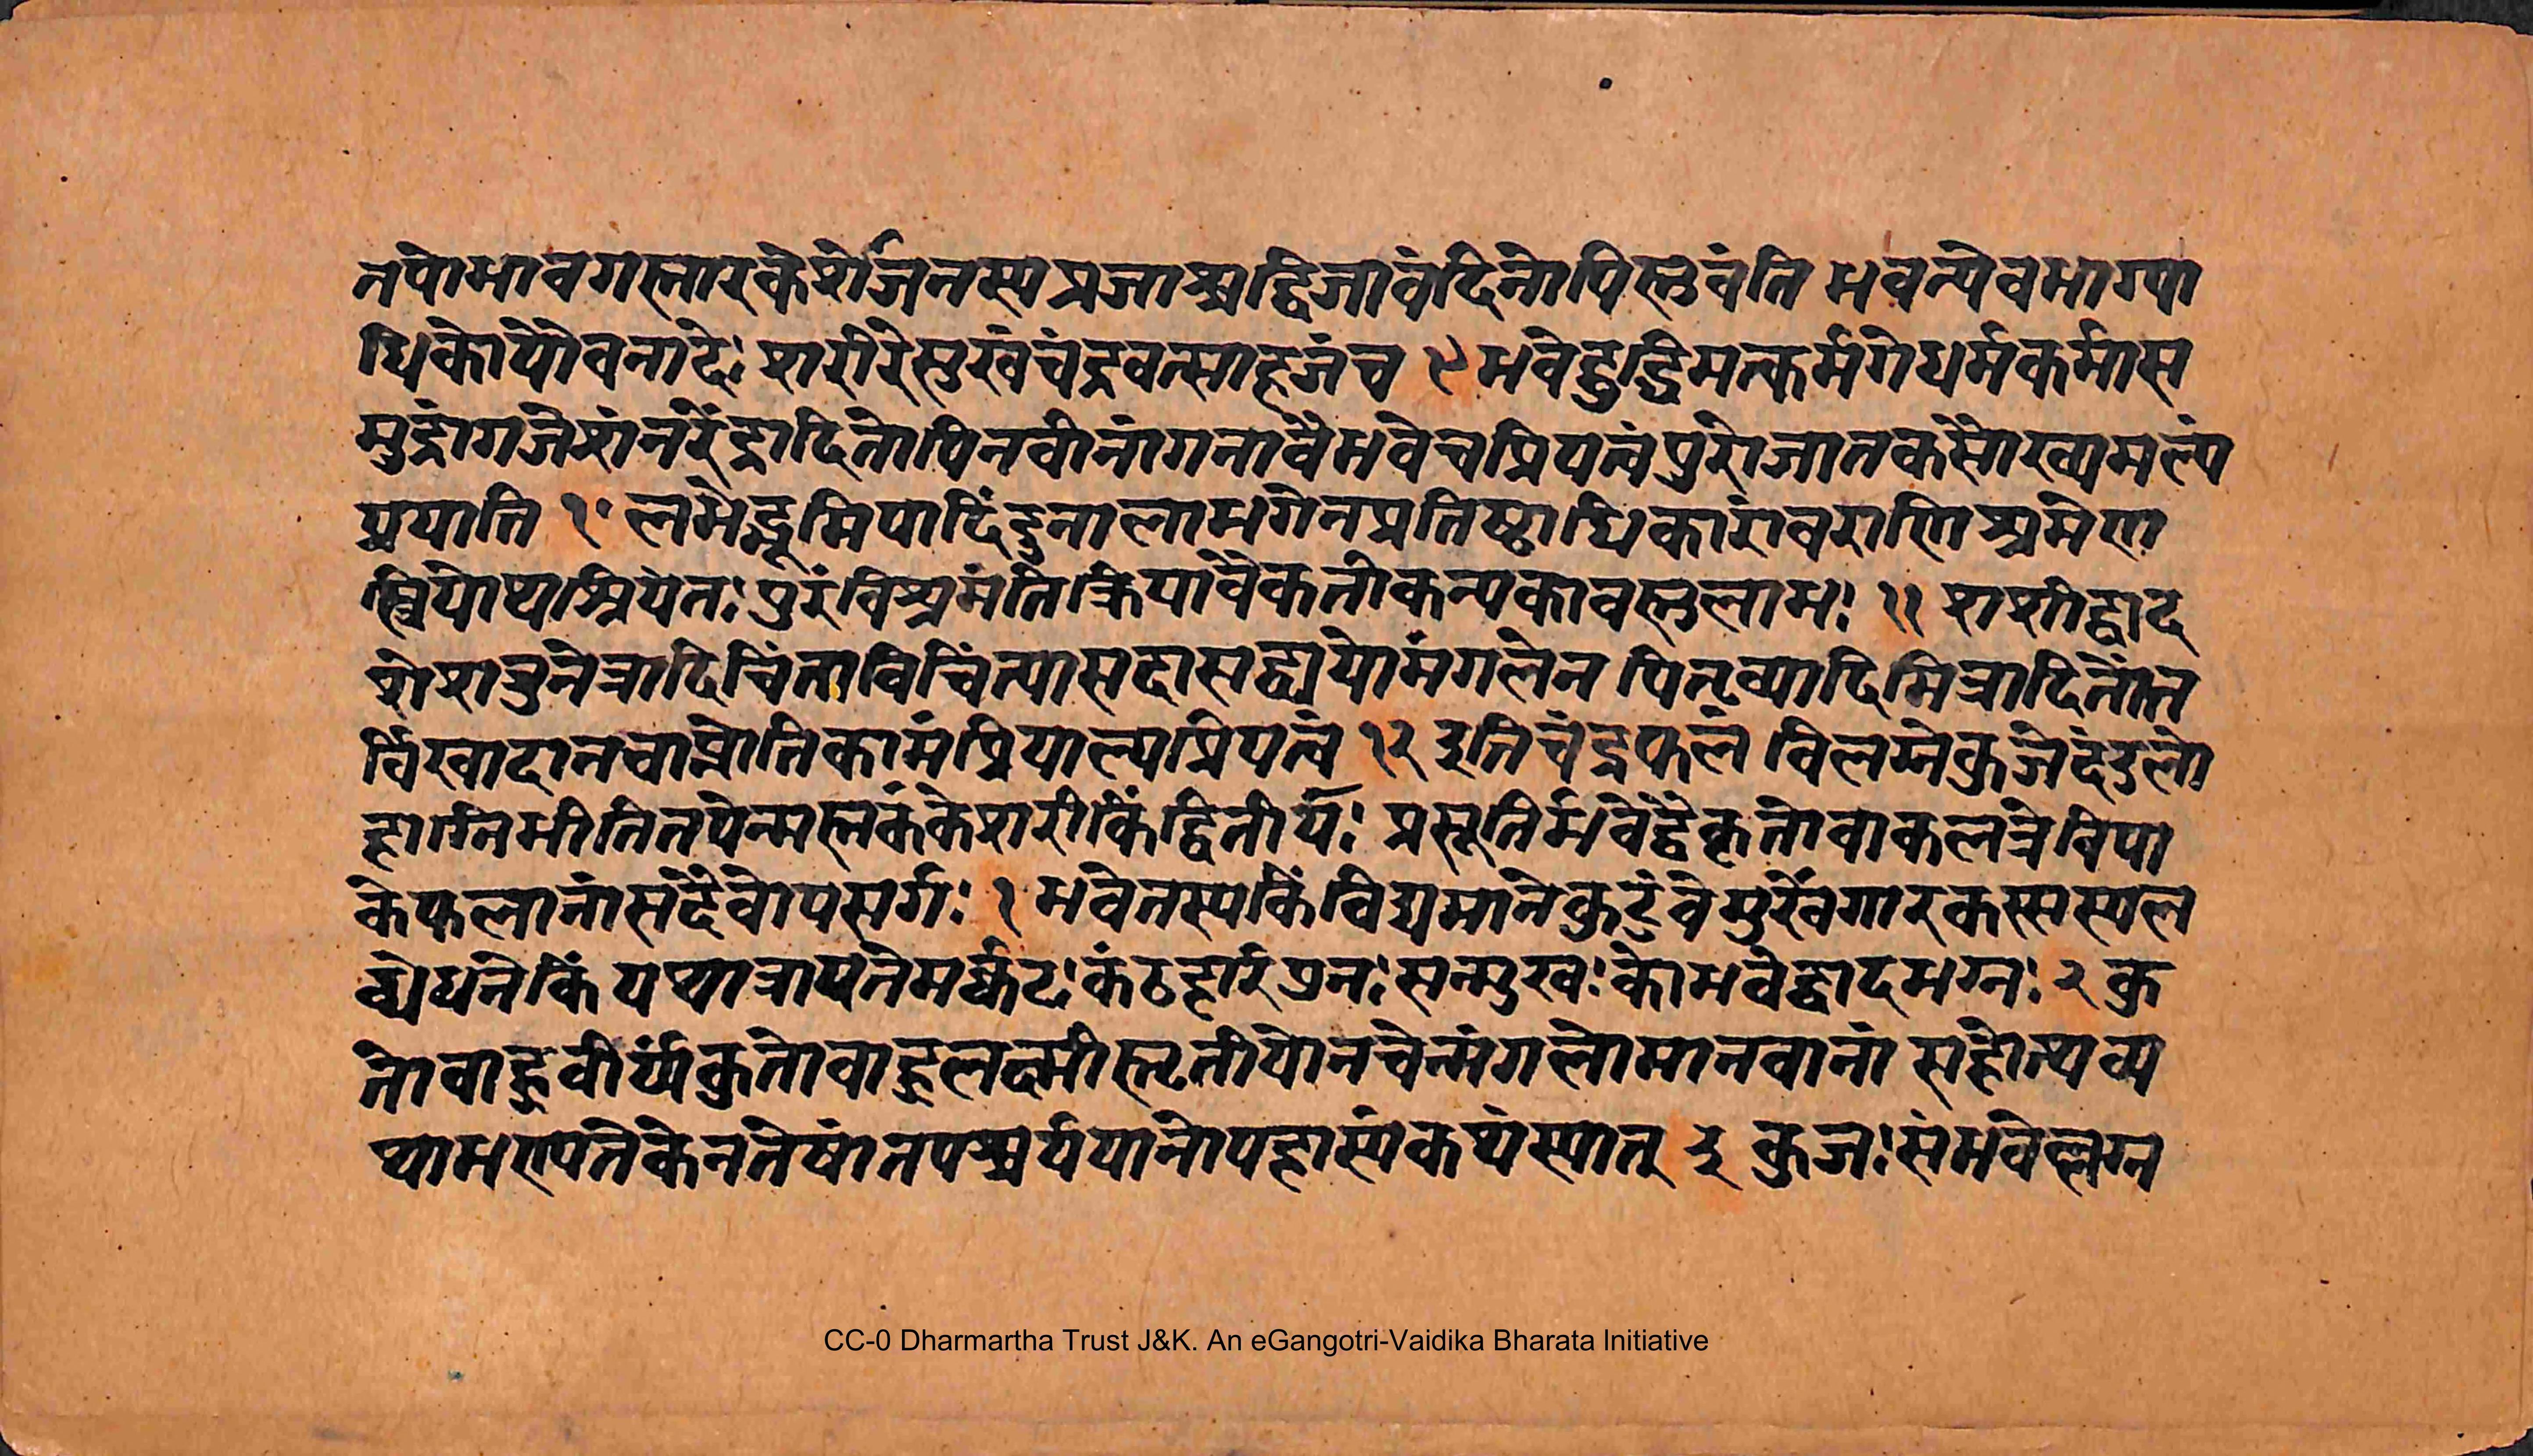 तपोभावगस्तारकेशोर्जनस्य प्रजाश्चद्विजावंदिनोपिस्तुवंति भवत्येवभाग्या
धिकोयौवनादेः शरीरेसुखंचंद्रवत्साहजंच ९ भवेद्बुद्धिमत्कर्मगेधर्मकर्मास
मुद्रांगजेशंनरेंद्रादितोपिनवीनांगनावैभवेचप्रियत्वंपुरोजातकेसौख्यमल्पं
प्रयाति १॰ लभेद्भूमिपादिंदुनालाभगेनप्रतिष्ठाधिकारांवराणिश्रमेण
स्त्रियोथश्रियेतःपुरंविश्रमंतिक्रियावैकतीकन्यकावस्तुलाभः ११ शशीद्वाद
शेशत्रुनेत्रादिचिंताविचिंत्यासदासद्व्ययोमंगलेन पितृव्यादिमित्रादितोंत
र्विखादानचाप्नोतिकामंप्रियाल्पप्रियत्वं १२ इतिचंद्रफलं विलग्नेकुजेदंडलो
हाग्निभीतितपेन्मस्तकंकेशरीकिंद्वितीयः प्रसूतिर्भवेद्वैकृतोवाकलत्रेविपा
केफलानांसदैवोपसर्गः १ भवेतस्यकिंविद्यमानेकुटुंवेमुखेंगारकस्सस्यल
व्धेधनेकिं यथात्रायतेमर्कटःकंठहारंप्रनःसन्मुखःकोभवेद्वादभग्नः २ कु
तोवाहुवीर्यंकुतोवाहुलक्ष्मीस्तृतीयोनचेन्मंगलोमानवानां सहोत्थव्य
थाभण्यतेकेनतेषांतपश्चर्ययानोपहास्यंकथंस्यात् ३ कुजःसंभवेल्लग्न
CC-0 Dharmartha Trust J&K. An eGangotri-Vaidika Bharata Initiative